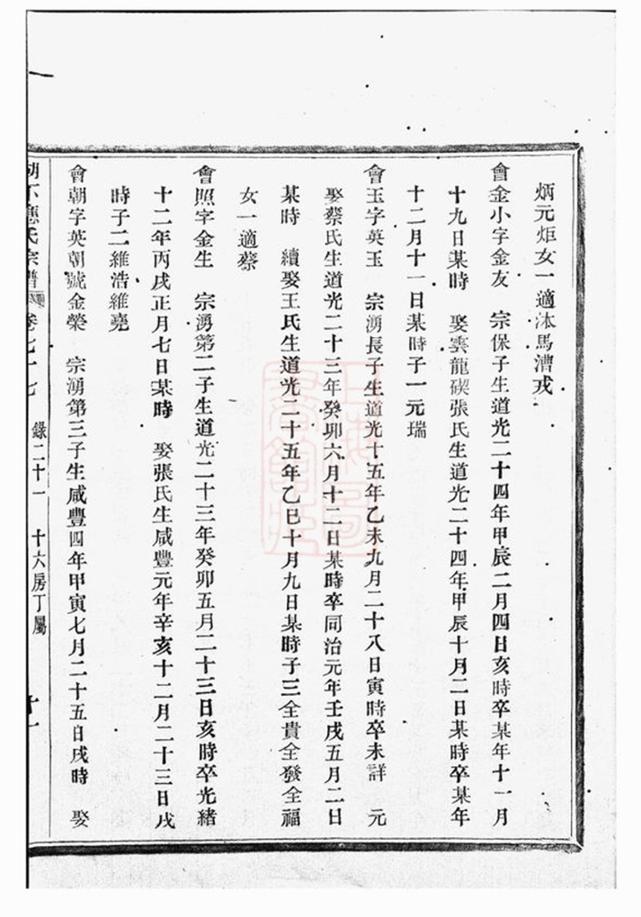 炳元炬女一適沐馬漕戎
會金小字金友 宗保子生道光二十四年甲辰二月四日亥時卒某年十一月
十九日某時 娶雲龍碶張氏生道光二十四年甲辰十月二日某時卒某年
十二月十一日某時子一元瑞
會玉字英玉 宗湧長子生道光十五年乙未九月二十八日寅時卒未詳 元
娶蔡氏生道光二十三年癸卯六月十二日某時卒同治元年壬戌五月二日
某時 續娶王氏生道光二十五年乙巳十月九日某時子三全貴全發全福
女一適蔡
會照字金生 宗湧第二子生道光二十三年癸卯五月二十三日亥時卒光緒
十二年丙戌正月七日某時 娶張氏生咸豐元年辛亥十二月二十三日戌
時子二維浩維堯
會朝字英朝號金榮 宗湧第三子生咸豐四年甲寅七月二十五日戌時 娶
下應氏宗譜 卷七十七 錄二十一 十大房丁屬